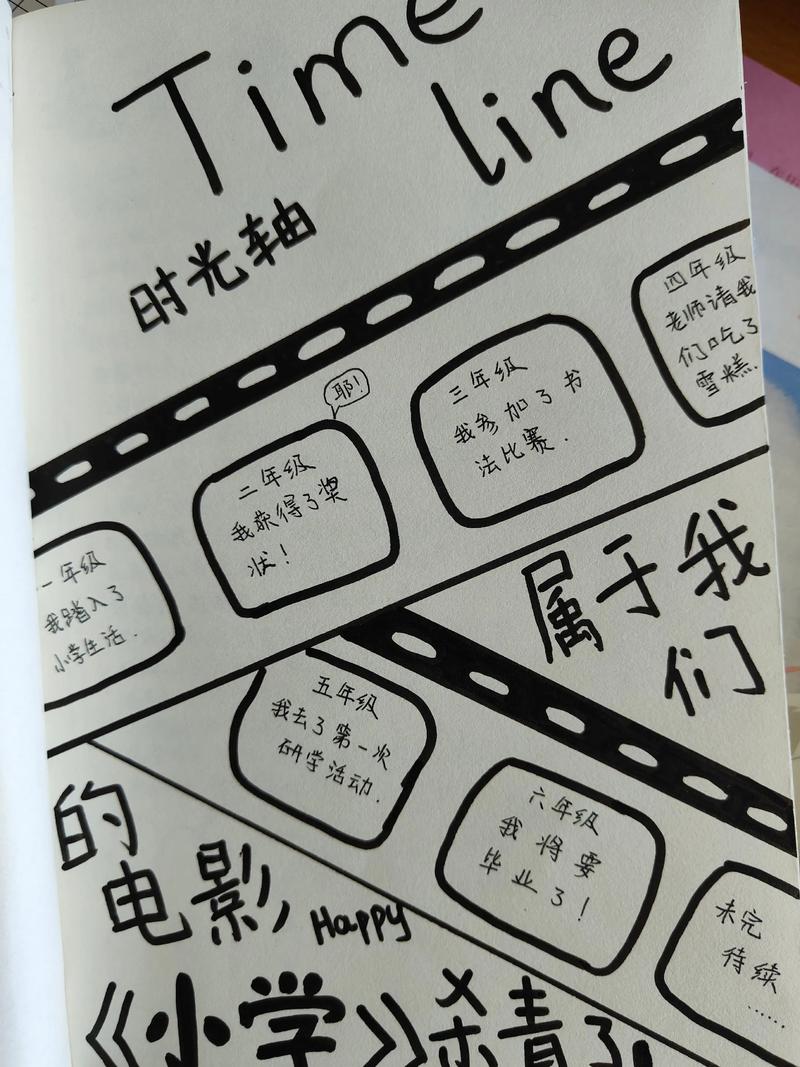 Time
line
时光轴
一年级
我踏入了
小学生活.
耶!
二年级
我获得了奖
状!
三年级
我参加了书
法比赛.
四年级
老师请我
们吃了
雪糕.
属于我
们
五年级
我去了第一次
研学活动.
六年级
我将要
毕业了!
未完
待续
......
的
电影
Happy
《小学》杀青了!